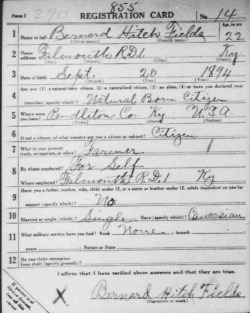 855
Form 1 REGISTRATION CARD No. 14
1 Name in full Bernard Hitch Fields 22
2 Home address Falmouth R.D.1. Ky
3 Date of birth Sept. 20 1894
4 Natural Born Citizen
5 Where were you born? Pendleton Co. Ky U.S.A.
6 If not a citizen, of what country are you a citizen or subject? Citizen
7 What is your present trade, occupation, or office? Farmer 1
8 By whom employed? For Self
Where employed? Falmouth R.D.1 Ky
9 Have you a father, mother, wife, child under 12, or a sister or brother under 12, solely dependent on you for
support (specify which)? No
10 Married or single (which)? Single Race (specify which)? Caucasian
11 What military service have you had? Rank None ; branch
years ; Nation or State
12 Do you claim exemption
from draft (specify grounds)?
I affirm that I have verified above answers and that they are true.
X Bernard Hitch Fields